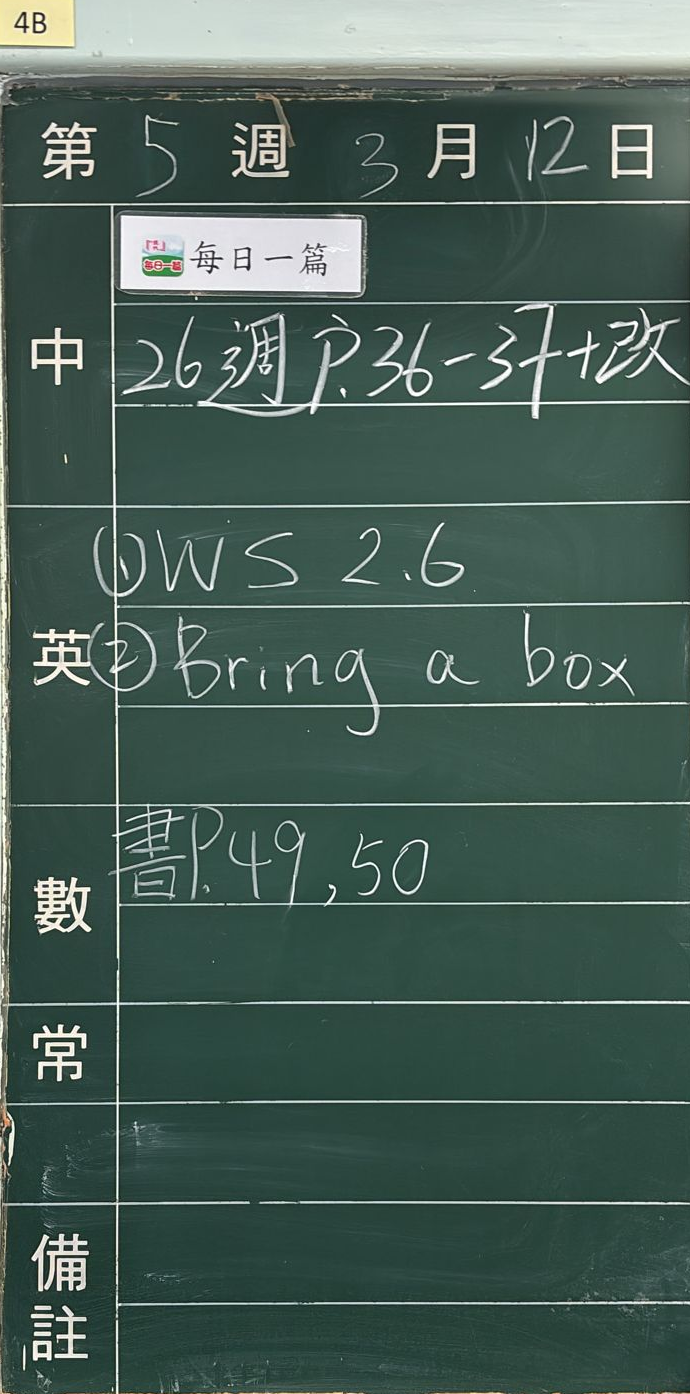 4B
第 5 週 3 月 12 日
每日一篇 每日一篇
中
26週 P.36-37+改
①WS 2.6
英 ②Bring a box
書P.49,50
數
常
備
註